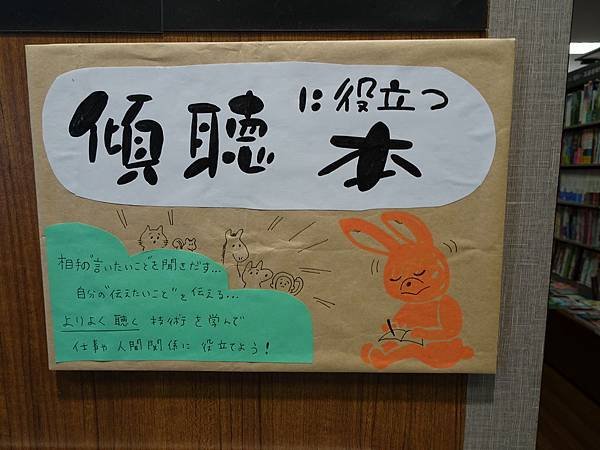 傾聴に役立つ本
相手の"言いたいこと"を聞きだす...
自分の"伝えたいこと"を伝える...
よりよく聴く技術を学んで
仕事や人間関係に役立てよう!